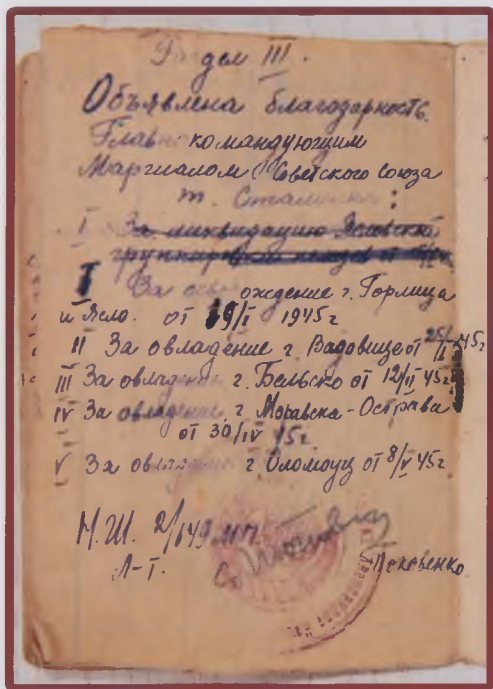 Раздел III.
Объявлена благодарность
Главнокомандующим
Маршалом Советского Союза
т. Сталиным:
I За ликвидацию Ясельской
группировки немцев от
I За освобождение г. Горлица
и Ясло. от 19/I 1945г
II За овладение г. Вадовице от 25/I 45г
III За овладение г. Бельско от 12/II 45г
IV За овладение г. Моравска-Острава
от 30/IV 45г
V За овладение г Оломоуц от 8/V 45г
Н.Ш. 2/649 мп
Л-т.